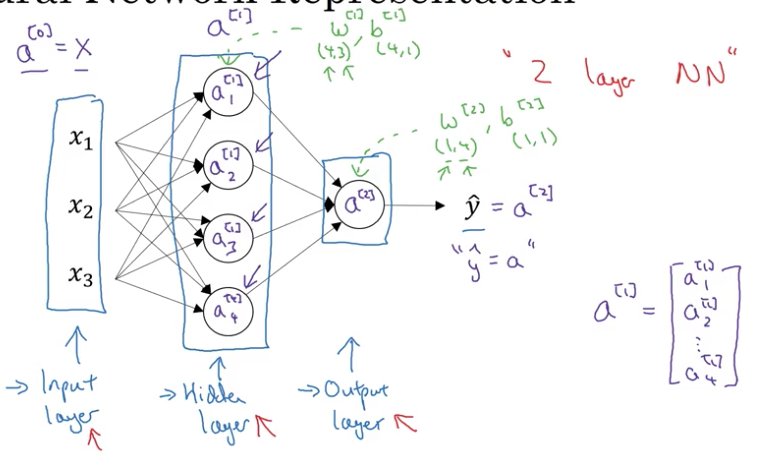 ural Network Representation
a^[0] = X
a^[1]
w^[1], b^[1]
(4,3) (4,1)
"2 layer NN"
x₁
x₂
x₃
a₁^[1]
a₂^[1]
a₃^[1]
a₄^[1]
w^[2], b^[2]
(1,4) (1,1)
a^[2]
ŷ = a^[2]
"ŷ = a"
a^[1] =
a₁^[1]
a₂^[1]
⋮
a₄^[1]
→ Input
layer
→ Hidden
layer
→ Output
layer